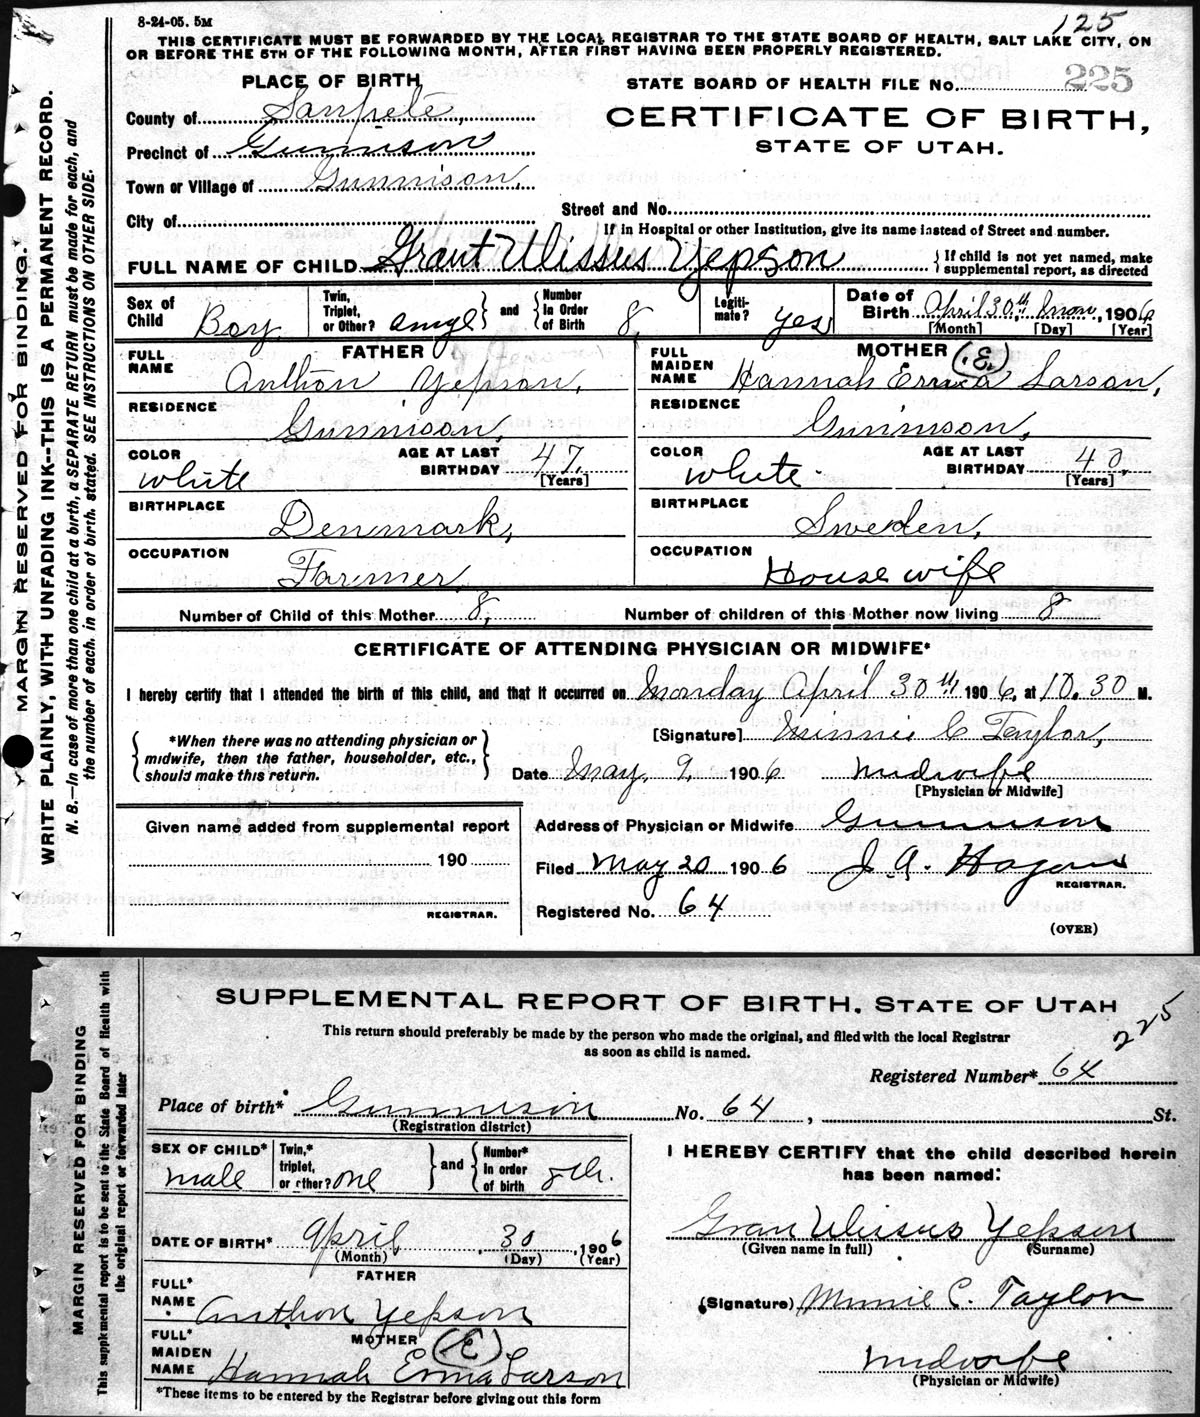 8-24-05. 5M
125
THIS CERTIFICATE MUST BE FORWARDED BY THE LOCAL REGISTRAR TO THE STATE BOARD OF HEALTH, SALT LAKE CITY, ON
OR BEFORE THE 5TH OF THE FOLLOWING MONTH, AFTER FIRST HAVING BEEN PROPERLY REGISTERED.
PLACE OF BIRTH
STATE BOARD OF HEALTH FILE No. 225
County of Sanpete,
CERTIFICATE OF BIRTH,
STATE OF UTAH.
Precinct of Gunnison
Town or Village of Gunnison,
City of
Street and No.
If in Hospital or other Institution, give its name instead of Street and number.
FULL NAME OF CHILD Grant Ulissus Yepson { If child is not yet named, make
supplemental report, as directed
Sex of Child Boy
Twin, Triplet, or Other?
and
Number in Order of Birth 8
Legitimate? yes
Date of Birth April 30th, 1906
[Month] [Day] [Year]
FATHER
FULL NAME Anthon Yepson,
MOTHER (E)
FULL MAIDEN NAME Hannah Larson,
RESIDENCE Gunnison,
RESIDENCE Gunnison,
COLOR white
AGE AT LAST BIRTHDAY 47. [Years]
COLOR white.
AGE AT LAST BIRTHDAY 40, [Years]
BIRTHPLACE Denmark,
BIRTHPLACE Sweden,
OCCUPATION Farmer
OCCUPATION House wife
Number of Child of this Mother 8,
Number of children of this Mother now living 8
CERTIFICATE OF ATTENDING PHYSICIAN OR MIDWIFE*
I hereby certify that I attended the birth of this child, and that it occurred on Monday April 30th 1906, at 10.30 M.
*When there was no attending physician or
midwife, then the father, householder, etc.,
should make this return.
[Signature] Minnie C Taylor,
Date May. 9, 1906 Midwife
[Physician or Midwife]
Given name added from supplemental report
190
REGISTRAR.
Address of Physician or Midwife Gunnison
Filed May 20 1906 J. A. Hagan
REGISTRAR.
Registered No. 64
(OVER)
MARGIN RESERVED FOR BINDING.
WRITE PLAINLY, WITH UNFADING INK--THIS IS A PERMANENT RECORD.
N. B.—In case of more than one child at a birth, a SEPARATE RETURN must be made for each, and
the number of each, in order of birth, stated. SEE INSTRUCTIONS ON OTHER SIDE.
SUPPLEMENTAL REPORT OF BIRTH, STATE OF UTAH
This return should preferably be made by the person who made the original, and filed with the local Registrar
as soon as child is named.
225
Registered Number* 64
Place of birth* Gunnison No. 64, St.
(Registration district)
SEX OF CHILD* male
Twin,* triplet, or other? one
and
Number* in order of birth 8th.
I HEREBY CERTIFY that the child described herein
has been named:
Gran Ulissus Yepson
(Given name in full) (Surname)
DATE OF BIRTH* April 30, 1906
(Month) (Day) (Year)
FATHER
FULL* NAME Anthon Yepson
(Signature) Minnie C. Taylor
MOTHER (E)
FULL* MAIDEN NAME Hannah Erma Larson
Midwife
(Physician or Midwife)
*These items to be entered by the Registrar before giving out this form
MARGIN RESERVED FOR BINDING
This supplemental report is to be sent to the State Board of Health with
the original report or forwarded later